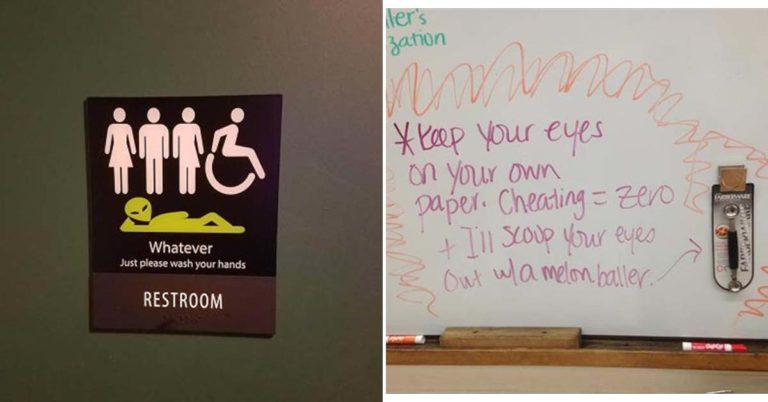 Whatever
Just please wash your hands
RESTROOM
ller's
zation
*Keep your eyes
on your own
paper. Cheating = zero
+ I'll scoop your eyes
out w/a melon baller.
FARBERWARE